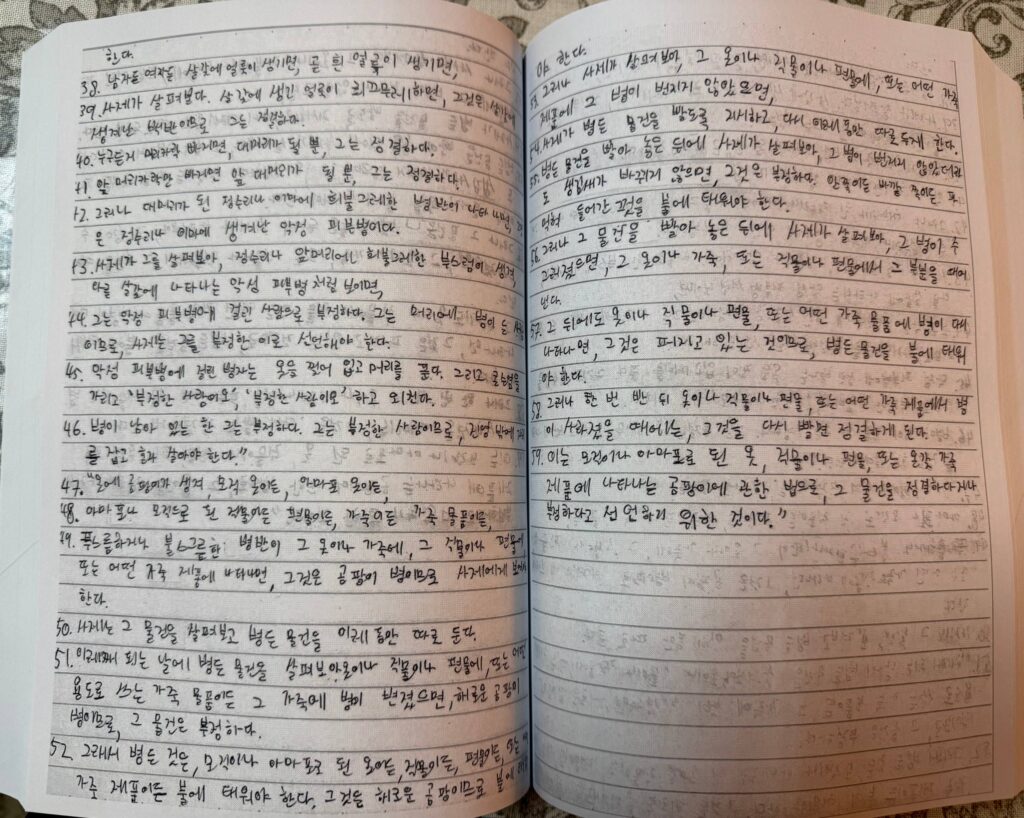 한다.
38. 남자든 여자든 살갗에 얼룩이 생기면, 곧 흰 얼룩이 생기면,
39. 사제가 살펴보다. 살갗에 생긴 얼룩이 희끄무레하면, 그것은 살갗에
생겨난 백반이므로 그는 정결하다.
40. 누구든지 머리카락 빠지면, 대머리가 될 뿐, 그는 정결하다.
41. 앞 머리카락만 빠지면 앞 대머리가 될 뿐, 그는 정결하다.
42. 그러나 대머리가 된 정수리나 이마에 희불그레한 병반이 나타나면,
은 정수리나 이마에 생겨난 악성 피부병이다.
43. 사제가 그를 살펴보아, 정수리나 앞머리에 희불그레한 부스럼이 생겨,
마을 살갗에 나타나는 악성 피부병처럼 보이면,
44. 그는 악성 피부병에 걸린 사람으로 부정하다. 그는 머리에 병이 든
이므로, 사제는 그를 부정한 이로 선언해야 한다.
45. 악성 피부병에 걸린 병자는 옷을 찢어 입고 머리를 푼다. 그리고 콧수염을
가리고 '부정한 사람이오', '부정한 사람이오' 하고 외친다.
46. 병이 남아 있는 한 그는 부정하다. 그는 부정한 사람이므로, 진영 밖에
를 잡고 혼자 살아야 한다."
47. "옷에 곰팡이가 생겨, 모직 옷이든, 아마포 옷이든,
48. 아마포나 모직으로 된 직물이든 편물이든, 가죽이든 가죽 물품이든,
49. 푸르스름하거나 불그스름한 병반이 그 옷이나 가죽에, 그 직물이나 편물에,
또는 어떤 가죽 제품에 나타나면, 그것은 곰팡이 병이므로 사제에게 보여야
한다.
50. 사제는 그 물건을 살펴보고 병든 물건을 이레 동안 따로 둔다.
51. 이레째 되는 날에 병든 물건을 살펴보아 옷이나 직물이나 편물에, 또는 어떤
용도로 쓰는 가죽 물품이든 그 가죽에 병이 번졌으면, 해로운 곰팡이
병이므로, 그 물건은 부정하다.
52. 그래서 병든 것은, 모직이나 아마포로 된 옷이든, 직물이든, 편물이든, 또는
가죽 제품이든 불에 태워야 한다. 그것은 해로운 곰팡이므로 불에
야 한다.
53. 그러나 사제가 살펴보아, 그 옷이나 직물이나 편물에, 또는 어떤 가죽
제품에 그 병이 번지지 않았으면,
54. 사제가 병든 물건을 빨도록 지시하고, 다시 이레 동안 따로 두게 한다.
55. 병든 물건을 빨아 놓은 뒤에 사제가 살펴보아, 그 병이 번지지 않았더라
도 생김새가 바뀌지 않으면, 그것은 부정하다. 안쪽이든 바깥 쪽이든 파
먹혀 들어간 것을 불에 태워야 한다.
56. 그러나 그 물건을 빨아 놓은 뒤에 사제가 살펴보아, 그 병이 수
그러졌으면, 그 옷이나 가죽, 또는 직물이나 편물에서 그 부분을 떼어
낸다.
57. 그 뒤에도 옷이나 직물이나 편물, 또는 어떤 가죽 물품에 병이 다시
나타나면, 그것은 퍼지고 있는 것이므로, 병든 물건을 불에 태워
야 한다.
58. 그러나 한 번 빤 뒤 옷이나 직물이나 편물, 또는 어떤 가죽 제품에서 병
이 사라졌을 때에는, 그것을 다시 빨면 정결하게 된다.
59. 이는 모직이나 아마포로 된 옷, 직물이나 편물, 또는 온갖 가죽
제품에 나타나는 곰팡이에 관한 법으로, 그 물건을 정결하다거나
부정하다고 선언하기 위한 것이다."